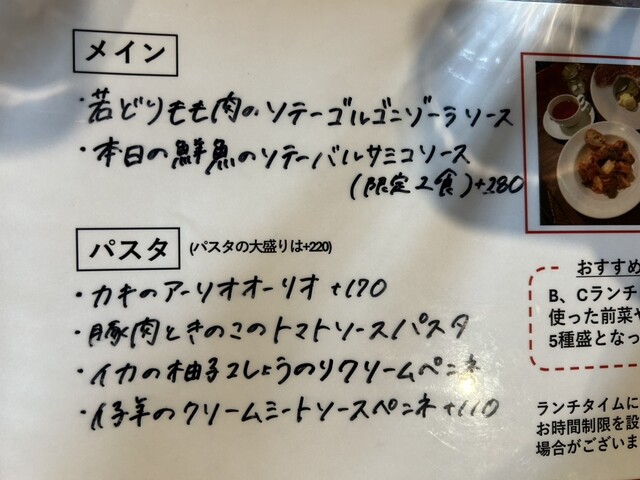 メイン
・若どりもも肉のソテーゴルゴンゾーラソース
・本日の鮮魚のソテーバルサミコソース
(限定2食)+280
パスタ (パスタの大盛りは+220)
・カキのアーリオオーリオ +170
・豚肉ときのこのトマトソースパスタ
・イカの柚子こしょうのりクリームペンネ
・仔羊のクリームミートソースペンネ +110
おすすめ
B、Cランチ
使った前菜や
5種盛となっ
ランチタイムに
お時間制限を設
場合がございま